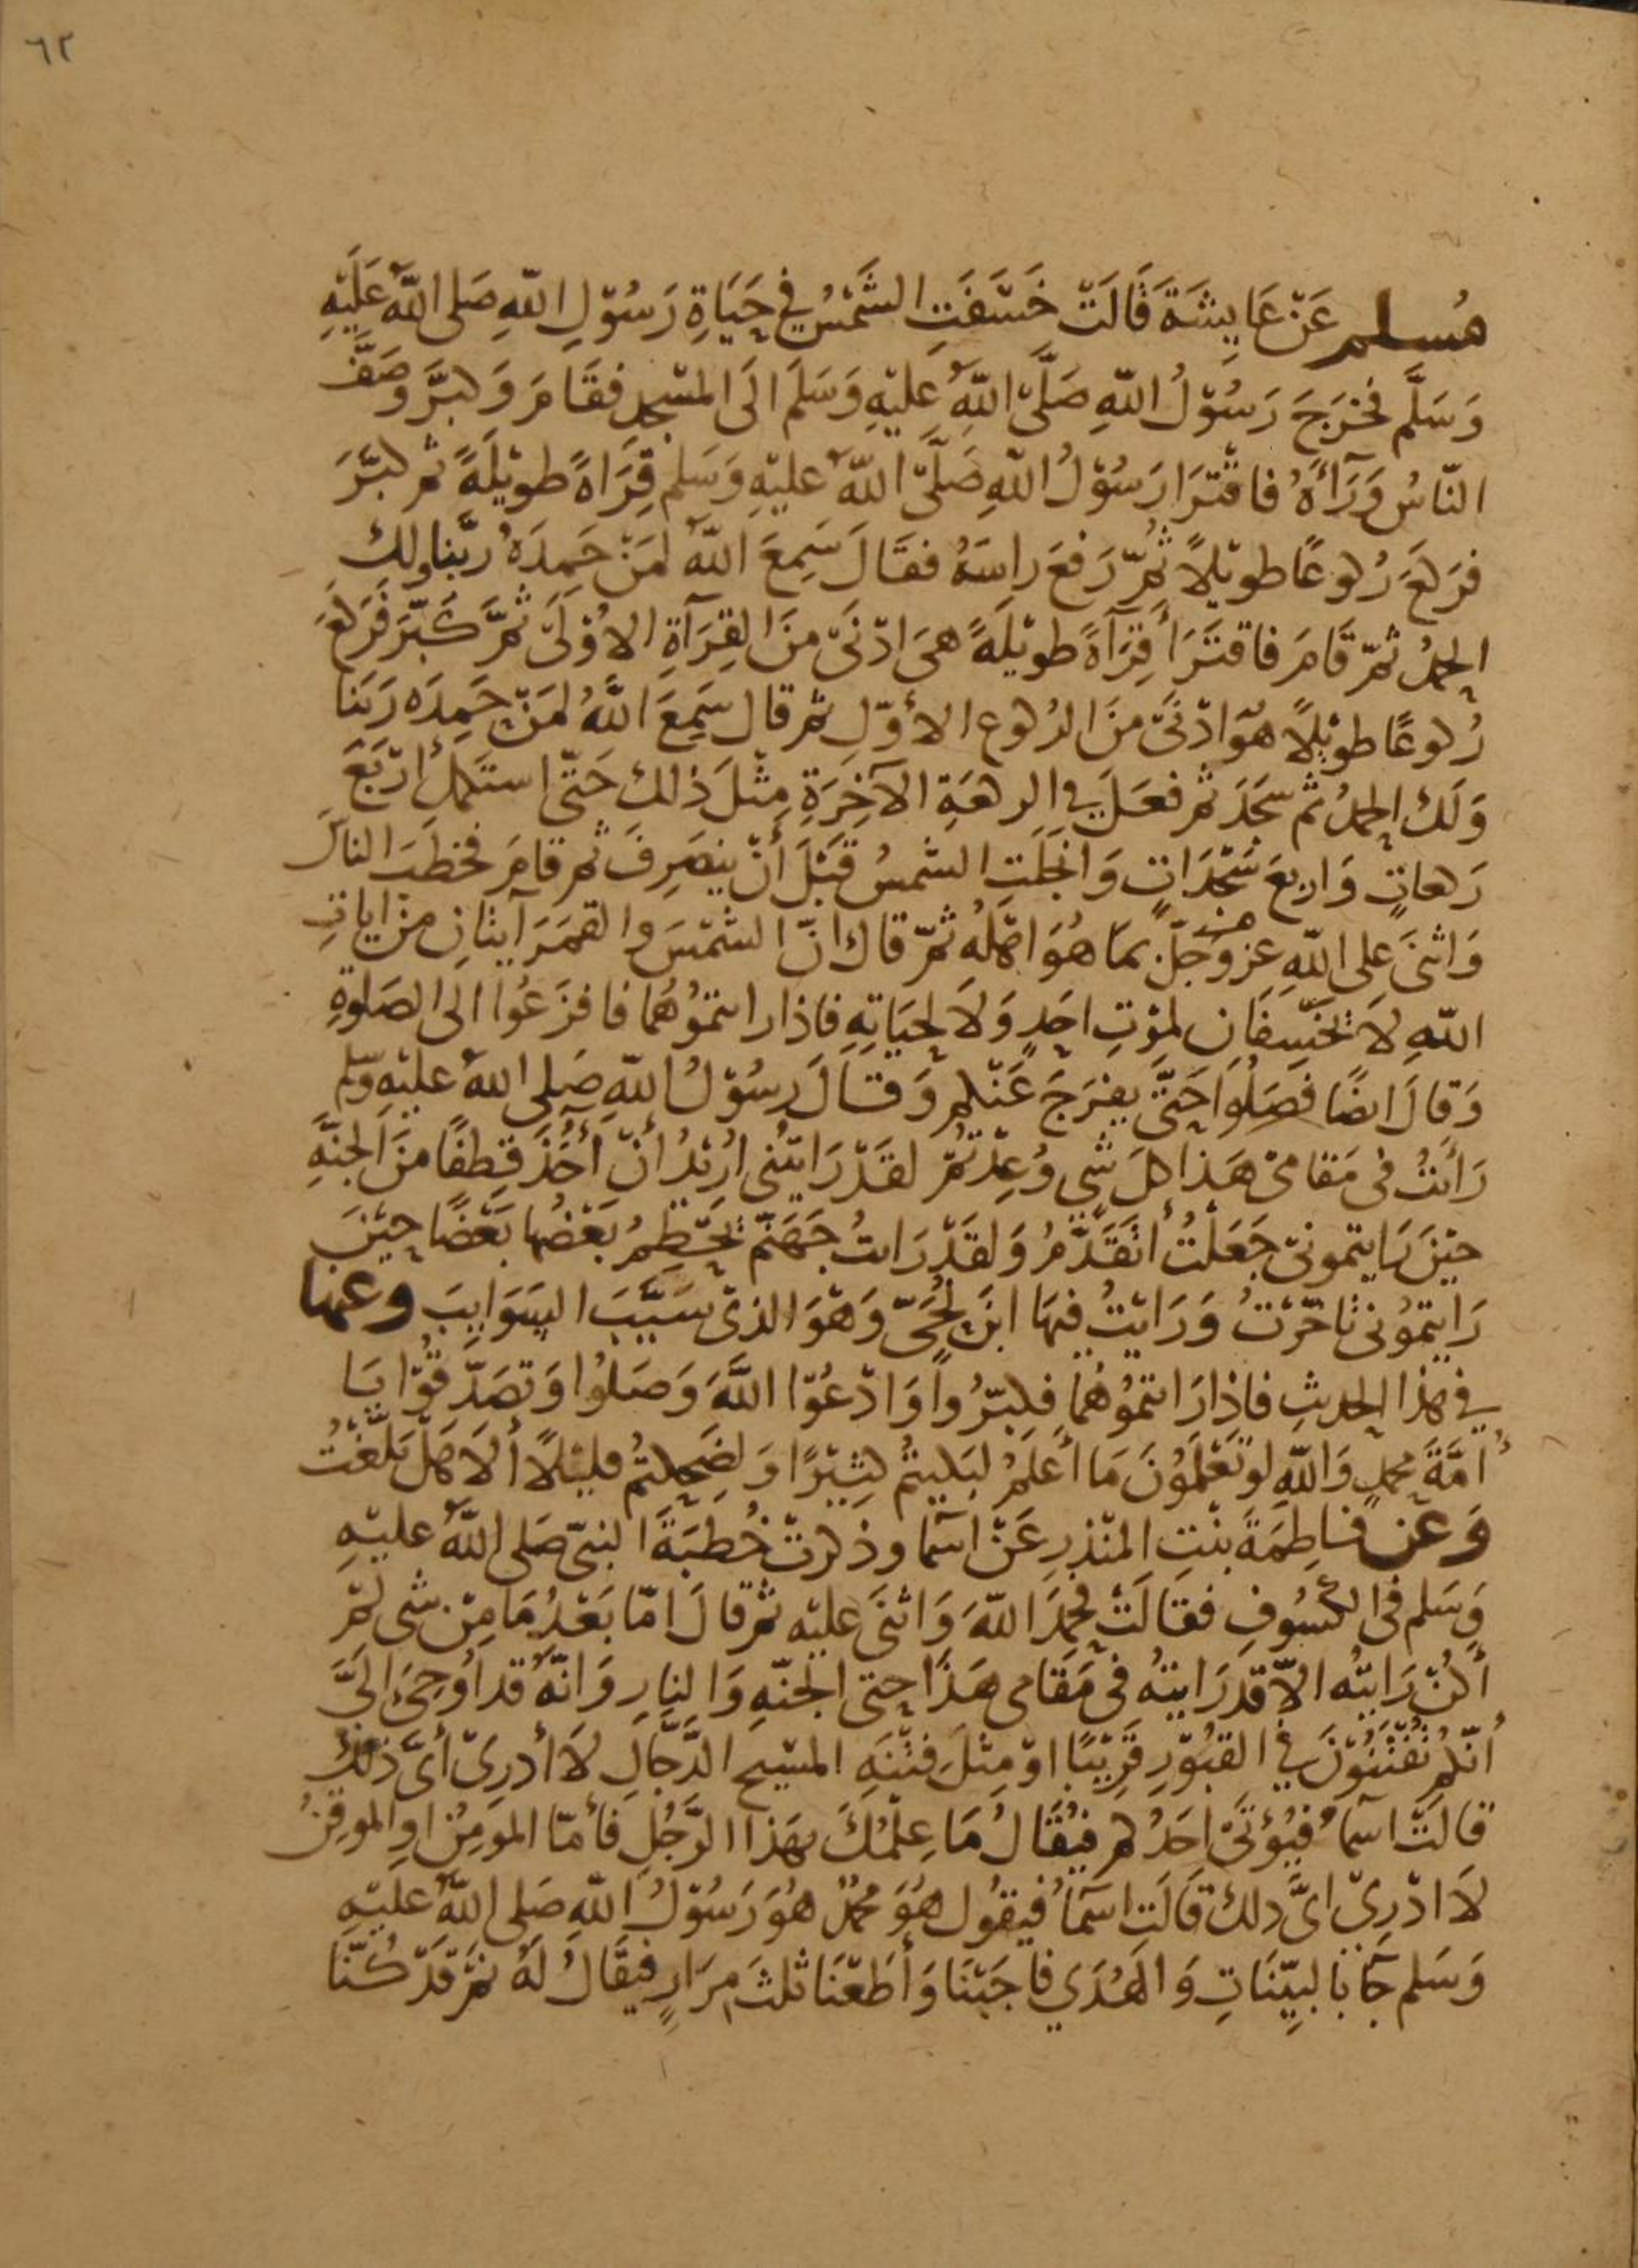 ٦٢
مُسلم عَنْ عَايِشَةَ قَالَتْ خَسَفَتِ الشَّمْسُ فِي حَيَاةِ رَسُوْلِ اللّٰهِ صَلى اللّٰهُ عَلَيْهِ
وَسَلَّم فخرَجَ رَسُوْلُ اللّٰهِ صَلَّى اللّٰهُ عليْهِ وَسَلمَ الَى المسْجد فقَامَ وَكبَّرَ وصَفَّ
النّاسُ وَرَآءَهُ فاقْتَرَا رَسُوْلُ اللّٰهِ صَلَّى اللّٰهُ عليْهِ وَسَلم قِرَاةً طويْلَةً ثم كبَّرَ
فرَكعَ رُكوعًا طويْلًا ثُمّ رَفعَ راسَهُ فقَالَ سَمِعَ اللّٰهُ لمَنْ حَمِدَهُ ربَّنا ولك
الحمدُ ثمّ قَامَ فاقتَرَأ قِرَآةً طويْلَةً هىَ ادْنَى منَ القِرَآةِ الاُوْلَى ثمَّ كَبّرَ فَرَكعَ
رُكوعًا طوِيْلًا هُوَ ادْنَى منَ الرُكوع الأوّلِ ثم قال سَمِعَ اللّٰهُ لمَنْ حَمِدَه رَبَنا
وَلَك الحمدُ ثم سَجَدَ ثم فعَلَ فِي الركعَةِ الآخِرَةِ مِثْلَ ذٰلكَ حَتّى استَكملَ ارْبَعَ
رَكعاتٍ وَاربعَ سَجَدَاتٍ وَانجَلَتِ الشمسُ قَبْلَ أَنْ ينصَرِفَ ثم قامَ فخطَبَ الناسَ
وَاثنَى على اللّٰهِ عز وَجَلّ بمَا هُوَ اهْلُه ثمّ قالَ انّ الشمْسَ والقمَرَ آيتَانِ منْ اياتِ
اللّٰهِ لاَ تَخْسِفَانِ لموْتِ احَدٍ وَلاَ لحيَاتِهِ فاذا رايتمُوْهُما فافزَعُوا الى الصَلوٰةِ
وَقالَ ايضًا فَصَلُوا حَتَّى يفرَجَ عَنْكم وَقالَ رسُوْلُ اللّٰهِ صَلى اللّٰهُ عليْهِ وسلم
رَأيتُ فى مَقامىْ هَذا كلَ شَىٍ وُعِدْتُمّ لقَدْ رَايتُنِى ارُيْدُ أنْ أآخُذَ قِطفًا منَ الجنَّةِ
حيْنَ رَايتمونىْ جَعَلْتُ أتَقَدَّمُ وَلقَدْ رَايتُ جَهَنّم يَحْطِمُ بَعْضُها بَعْضًا حيْنَ
رَايتمُوْنى تاخّرْتُ وَرَايْتُ فيهَا ابنَ لُحَىّ وَهْوَ الذىْ سَيَّبَ السَوَايِبَ وعنها
فِي هذا الحديثِ فاذا رَايتمُوْهُما فكبّرُوا وَادْعُوْا اللّٰهَ وَصَلُوْا وَتصَدّقُوْا يَا
أُمَّةَ محمدٍ وَاللّٰهِ لو تَعْلمُوْنَ مَا أعَلمُ لبَكيتُم كثِيْرًا وَلضَحِكتُم قليْلًا ألاَ هَلْ بَلّغْتُ
وَعَن فاطِمَةَ بنْتِ المنْذرِ عَنْ اسَما وذكرتْ خُطبَةَ النبىّ صَلى اللّٰهُ عليْهِ
وَسَلم فى الكسُوفِ فقالَتْ فحمِدَ اللّٰهَ وَاثنَى عليْه ثم قالَ امّا بَعْدُ مَا مِنْ شى لمْ
أكنْ رَايتُه الاّ قَدْ رَايتهُ فى مَقامى هَذَا حتى الجنّةِ وَالنارِ وَانّهُ قد اُوحِىَ الَىَّ
أنّكم تُفْتَنُوْنَ فِي القبُوْرِ قَرِيْبًا اوْ مِثلَ فِتْنَةِ المسْيح الدَّجَّالِ لاَ أدرِىْ أَىَّ ذٰلكَ
قالَتْ اسَماُ فيُؤتَى احَدُكم فيُقَالُ مَا عِلْمُكَ بهَذا الرَّجُلِ فأمّا المومِنُ اوِ الموقِنُ
لاَ ادْرِىْ اىَّ ذلك قَالَتِ اسَماُ فيقُول هُوَ محمدٌ هُوَ رَسُوْلُ اللّٰهِ صَلى اللّٰهُ عليْهِ
وَسَلم جَآ بالبيِّنَاتِ وَالهُدَي فاجَبْنَا وَأطَعْنَا ثلثَ مِرَارٍ فيُقَالُ لَهُ نمْ قَدْ كُنّا